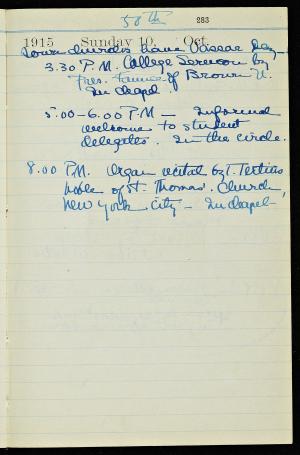 50th
283
1915 Sunday 10 Oct.
Town churches have Vassar Day —
3.30 P.M. College Sermon by
Pres. Faunce of Brown U.
In chapel.
5.00-6.00 P.M — Informal
welcome to student
delegates. In the circle.
8.00 P.M. Organ recital by T. Tertius
Noble of St. Thomas' Church,
New York City — In chapel